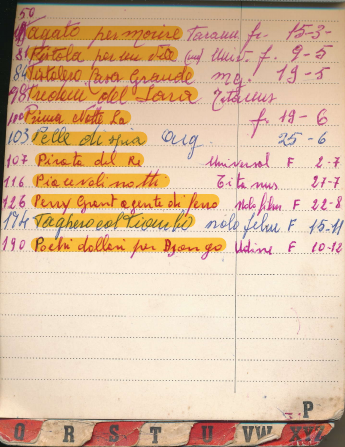 50
Pagato per morire Taranu fr. 15-3-
81 Pistola per un dio Univ. f. 9-5
84 Pistolero Casa Grande mg. 19-5
98 Predone del Sara Titanus
100 Prima notte La f. 19-6
103 Pelle di spia Aug. 25-6
107 Pirata del Re Universal F 2-7
116 Piacevoli notti Titanus 27-7
126 Perry Grant agente di ferro nolo film F 22-8
174 Paghero col Piombo nolo film F 15-11
190 Pochi dollari per Django Udine F 10-12
P
Q R S T U VW XYZ